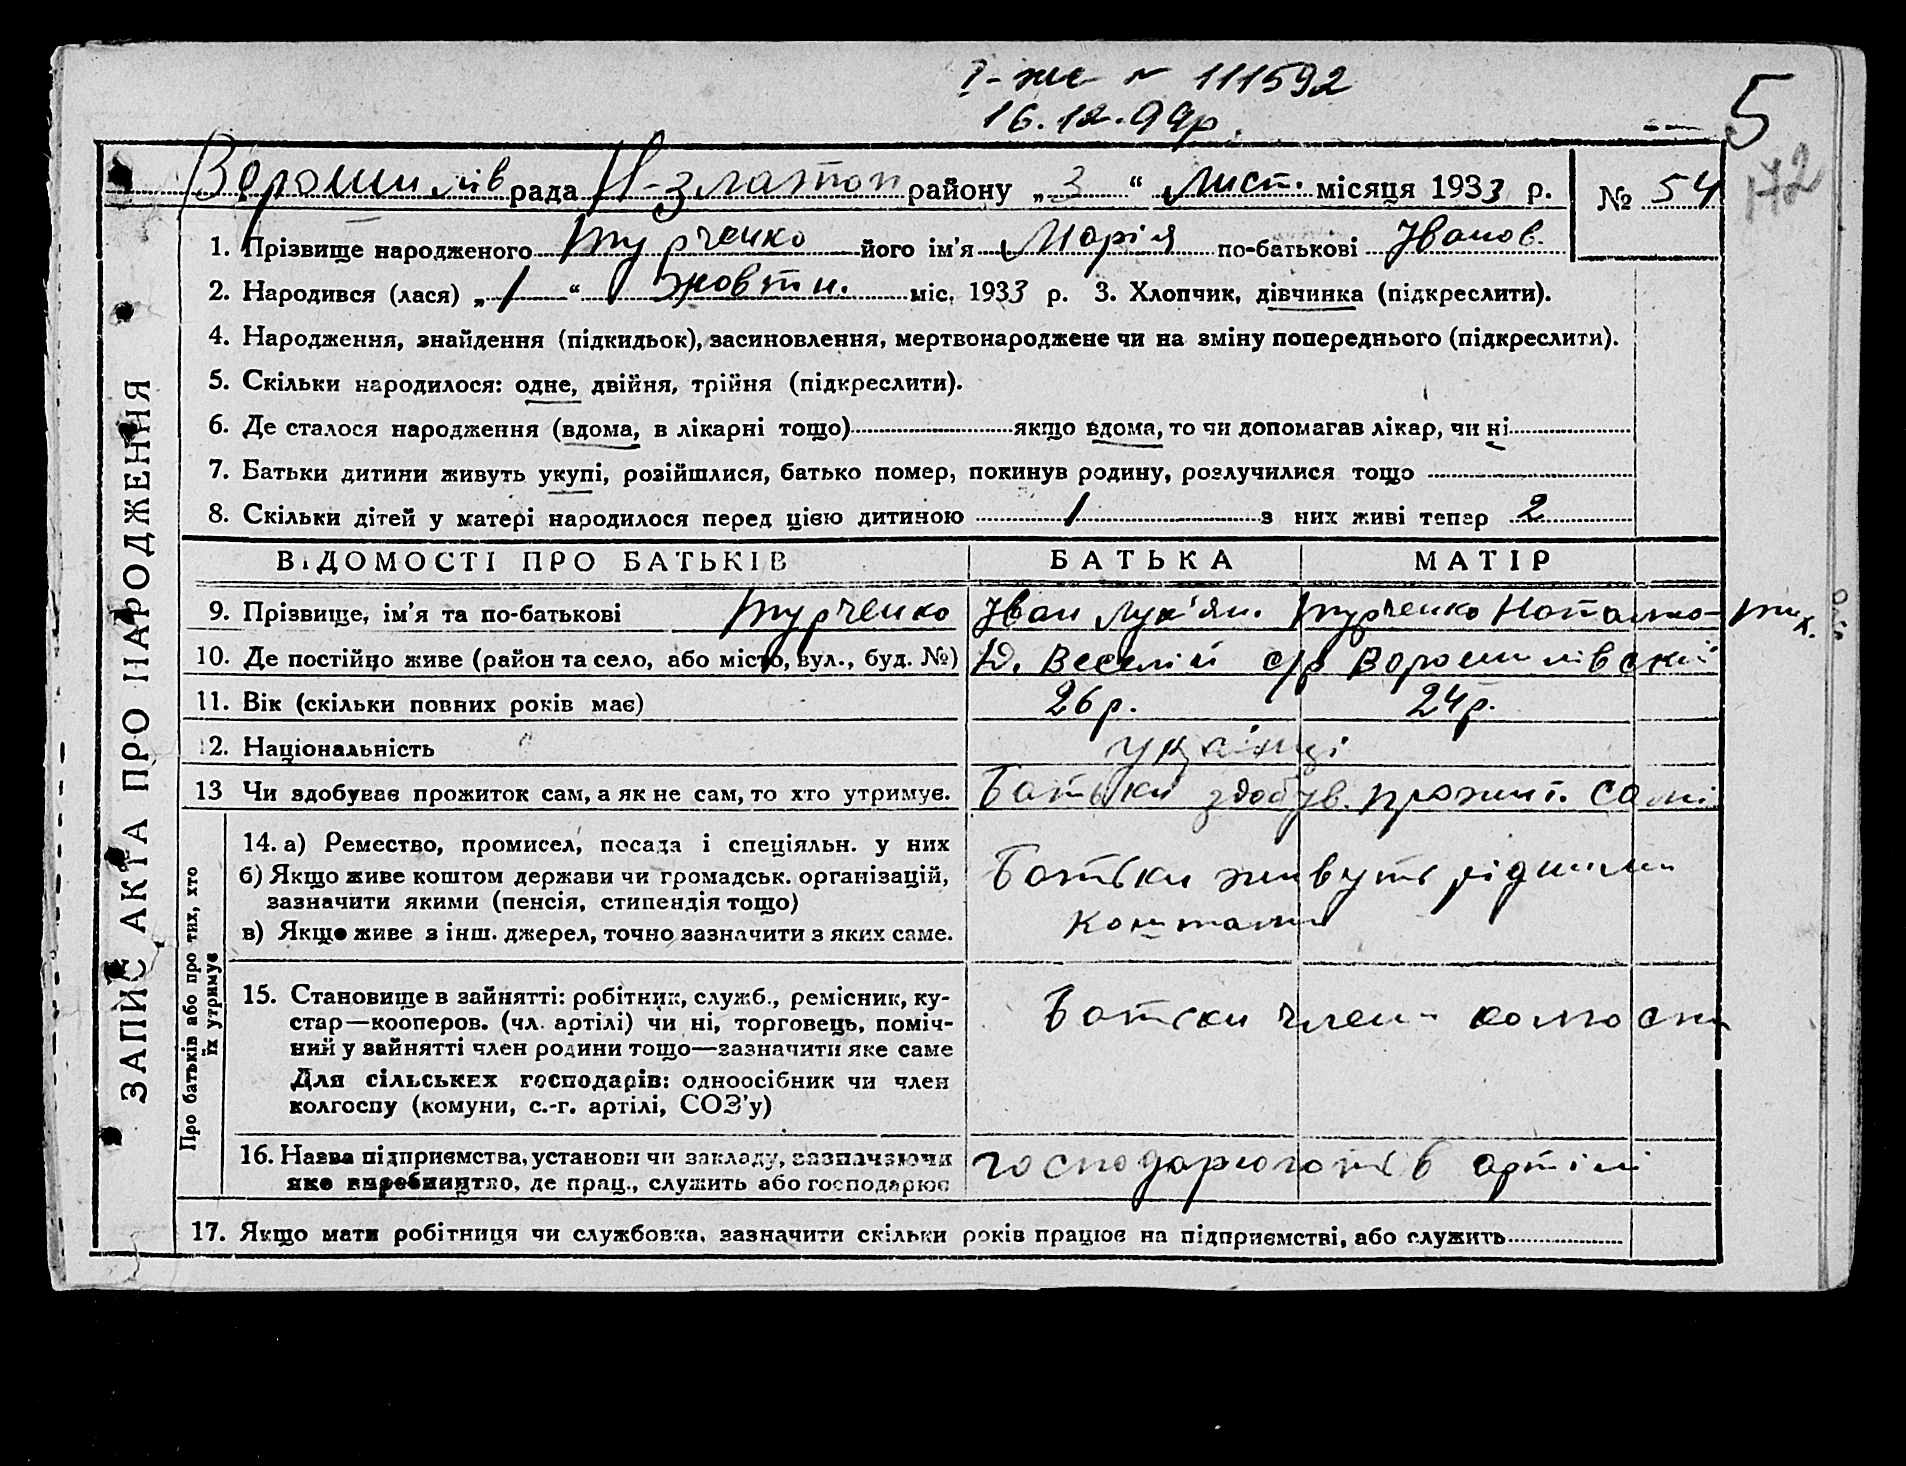 І-жс № 111592
16.12.99р.
5
172
Ворошилів рада Н-златоп району „3“ Лист. місяця 1933 р. № 54
1. Прізвище народженого Турченко його ім'я Марія по-батькові Іванов.
2. Народився (лася) „1“ жовтн. міс. 1933 р. 3. Хлопчик, дівчинка (підкреслити).
4. Народження, знайдення (підкидьок), засиновлення, мертвонароджене чи на зміну попереднього (підкреслити).
5. Скільки народилося: одне, двійня, трійня (підкреслити).
6. Де сталося народження (вдома, в лікарні тощо) якщо вдома, то чи допомагав лікар, чи ні
7. Батьки дитини живуть укупі, розійшлися, батько помер, покинув родину, розлучилися тощо
8. Скільки дітей у матері народилося перед цією дитиною 1 з них живі тепер 2
ВІДОМОСТІ ПРО БАТЬКІВ БАТЬКА МАТІР
9. Прізвище, ім'я та по-батькові Турченко Іван Лук'ян. Турченко Наталка Тих.
10. Де постійно живе (район та село, або місто, вул., буд. №) Веселий с/р Ворошилівский
11. Вік (скільки повних років має) 26р. 24р.
12. Національність українці
13 Чи здобуває прожиток сам, а як не сам, то хто утримує. Батьки здобув. прожит. самі
14. а) Ремество, промисел, посада і спеціяльн. у них
б) Якщо живе коштом держави чи громадськ. організацій,
зазначити якими (пенсія, стипендія тощо)
в) Якщо живе з інш. джерел, точно зазначити з яких саме.
Батьки живуть рідними
коштами
15. Становище в зайнятті: робітник, служб., ремісник, ку-
стар—кооперов. (чл. артілі) чи ні, торговець, поміч-
ний у зайнятті член родини тощо—зазначити яке саме
Для сільських господарів: одноосібник чи член
колгоспу (комуни, с.-г. артілі, СОЗ'у)
Батьки члени колгоспу
16. Назва підприємства, установи чи закладу, зазначаючи
яке виробництво, де прац., служить або господарює
господарюють в артілі
17. Якщо мати робітниця чи службовка, зазначити скільки років працює на підприємстві, або служить
ЗАПИС АКТА ПРО НАРОДЖЕННЯ
Про батьків або про тих, хто
їх утримує